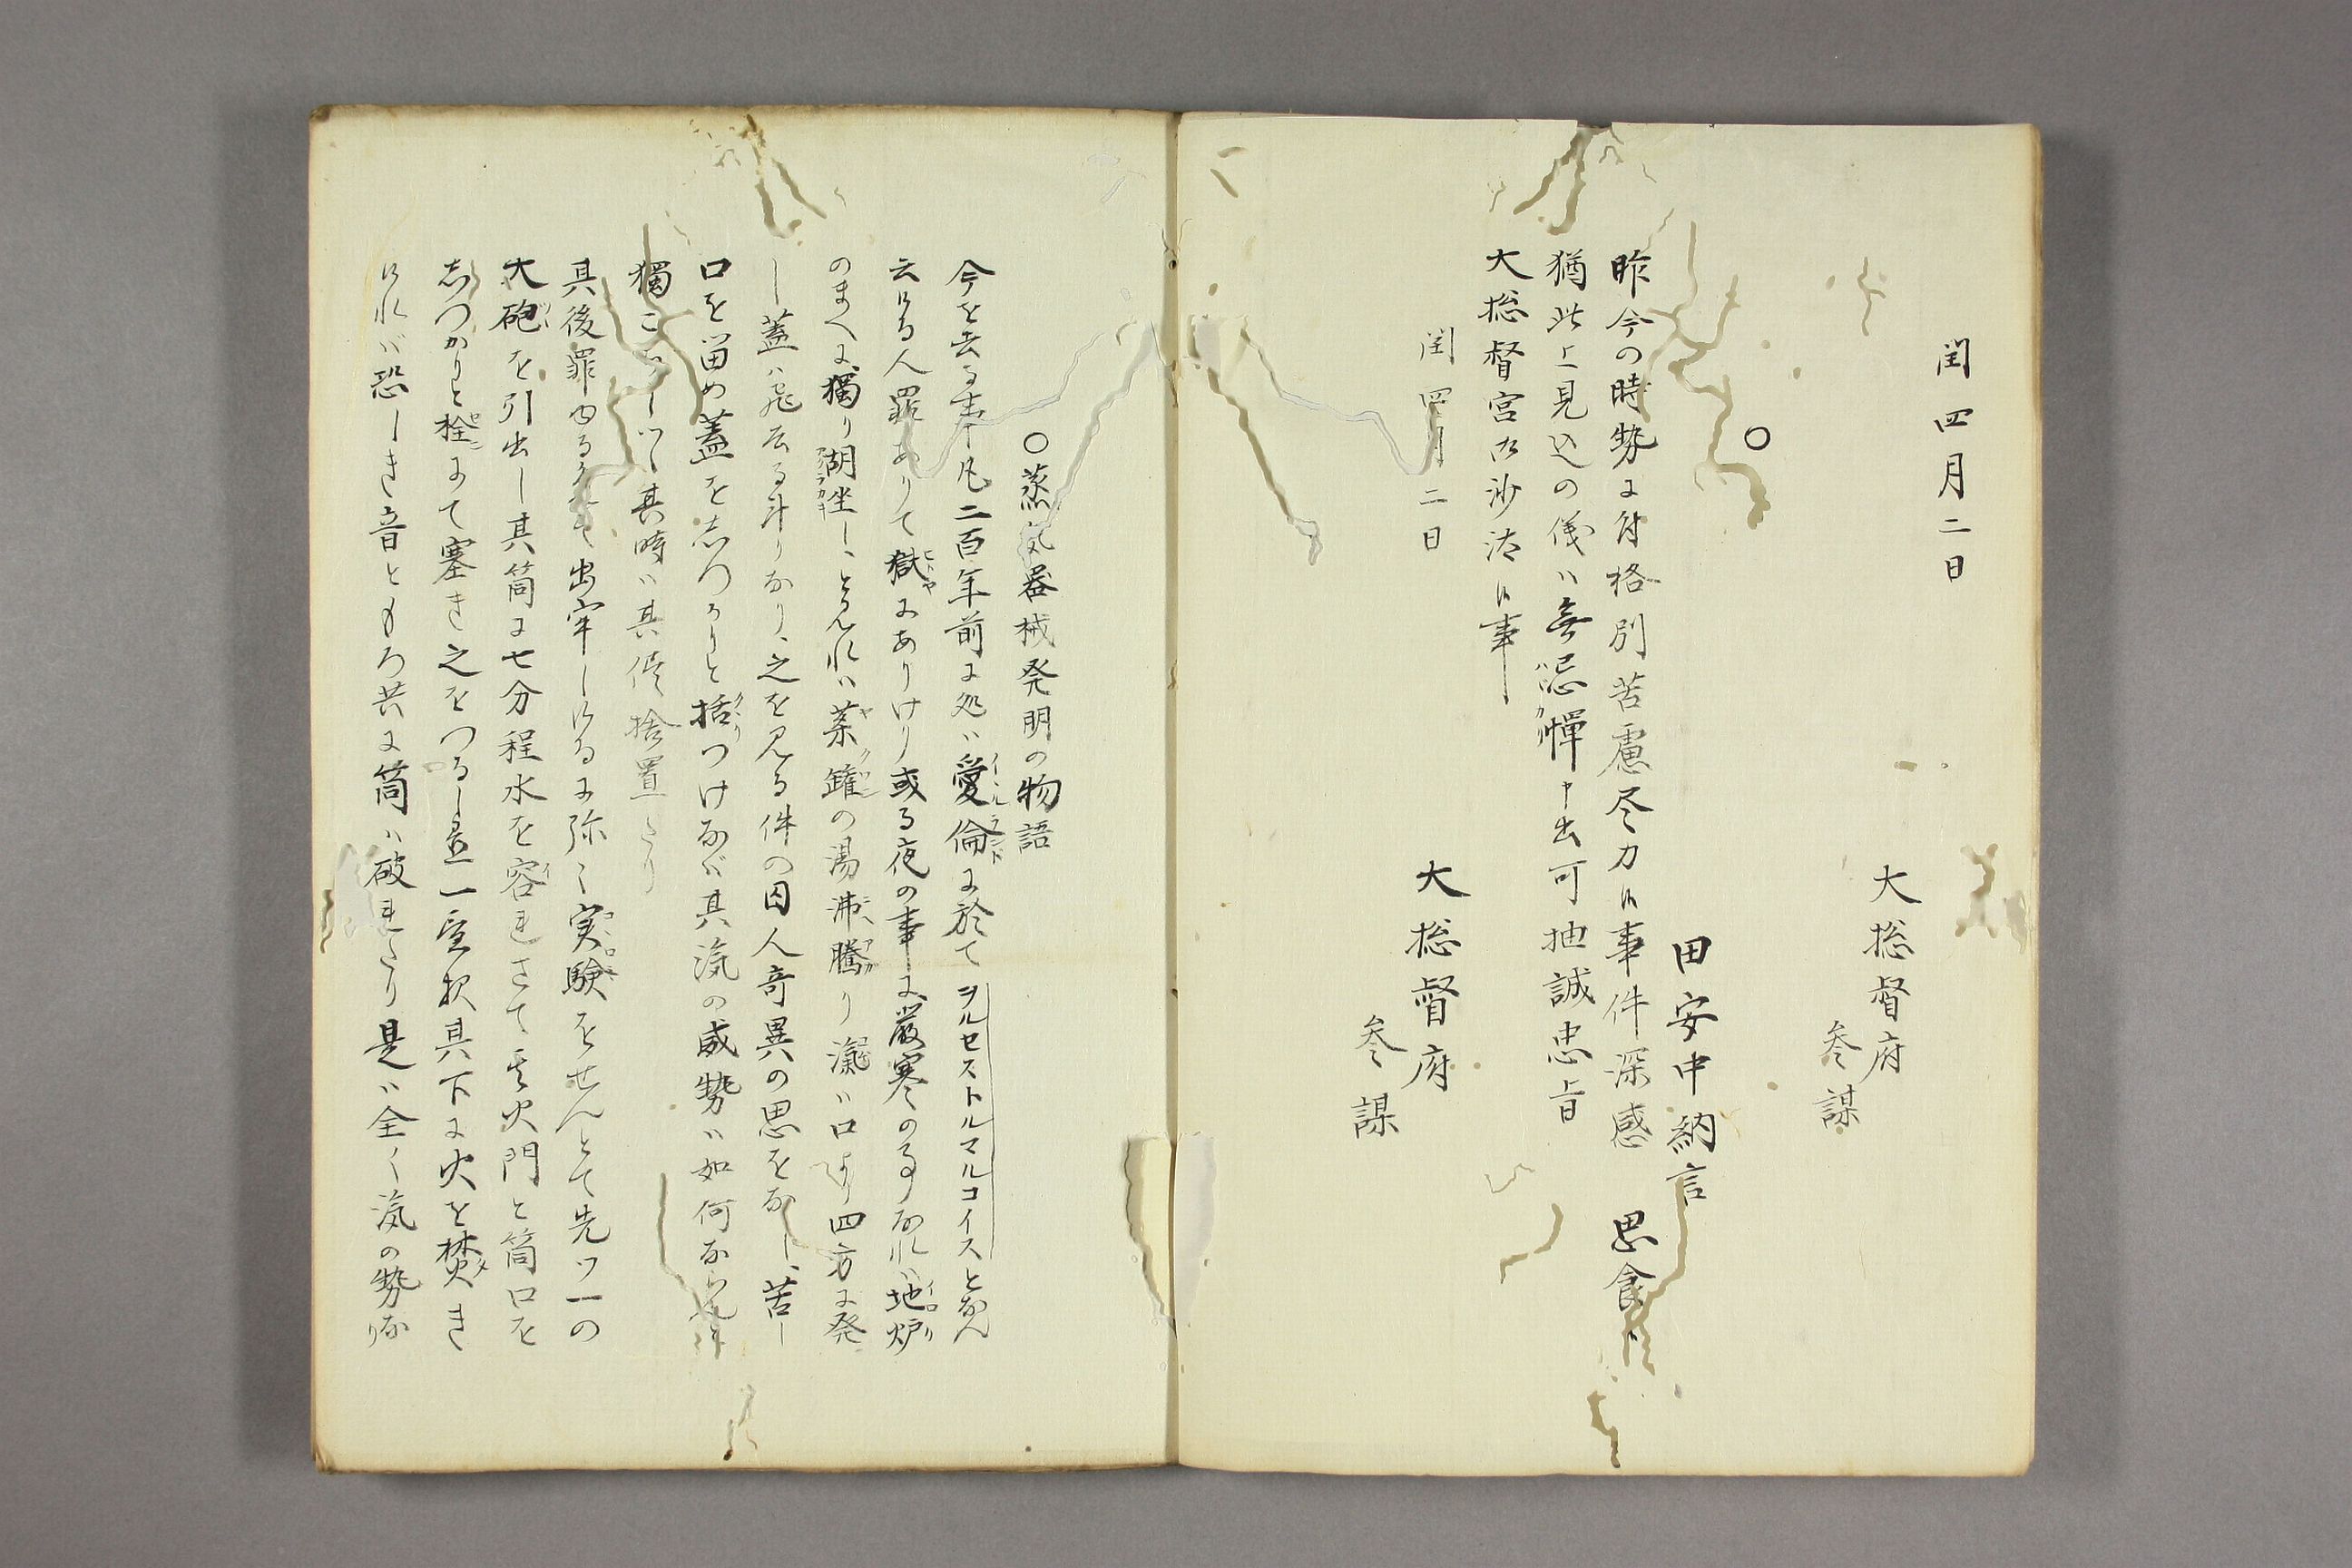 閏四月二日
大総督府
参謀
○
田安中納言
昨今の時勢ニ付格別苦慮尽力候事件深感　思食候
猶此上見込の儀ハ無忌憚申出可抽誠忠旨
大総督宮御沙汰候事
閏四月二日
大総督府
参謀
○蒸気器械発明の物語
今を去る事凡二百年前に処ハ愛倫に於てヲルセストルマルコイスとなん
云ける人罪ありて獄にありけり或る夜の事に厳寒のる事なれハ地炉
のまへに獨り湖坐し、とみれハ茶鑵の湯沸騰り瀛ハ口より四方に発
し蓋ハ飛去る斗りなり、之を見る件の囚人奇異の思をなし、苦し
口を留め蓋を志つかりと括つけなバ其気の威勢ハ如何ならん
獨こ　其時ハ其侭捨置たり
其後罪ゆる　出牢しけるに弥々実験をせんとて先ツ一の
大砲を引出し其筒に七分程水を容れさて火門と筒口を
志つかりと栓にて塞き之をつるし置一重㧞其下に火を焚き
けれバ恐しき音ともろ共に筒ハ破れたり是ハ全く気の勢なり